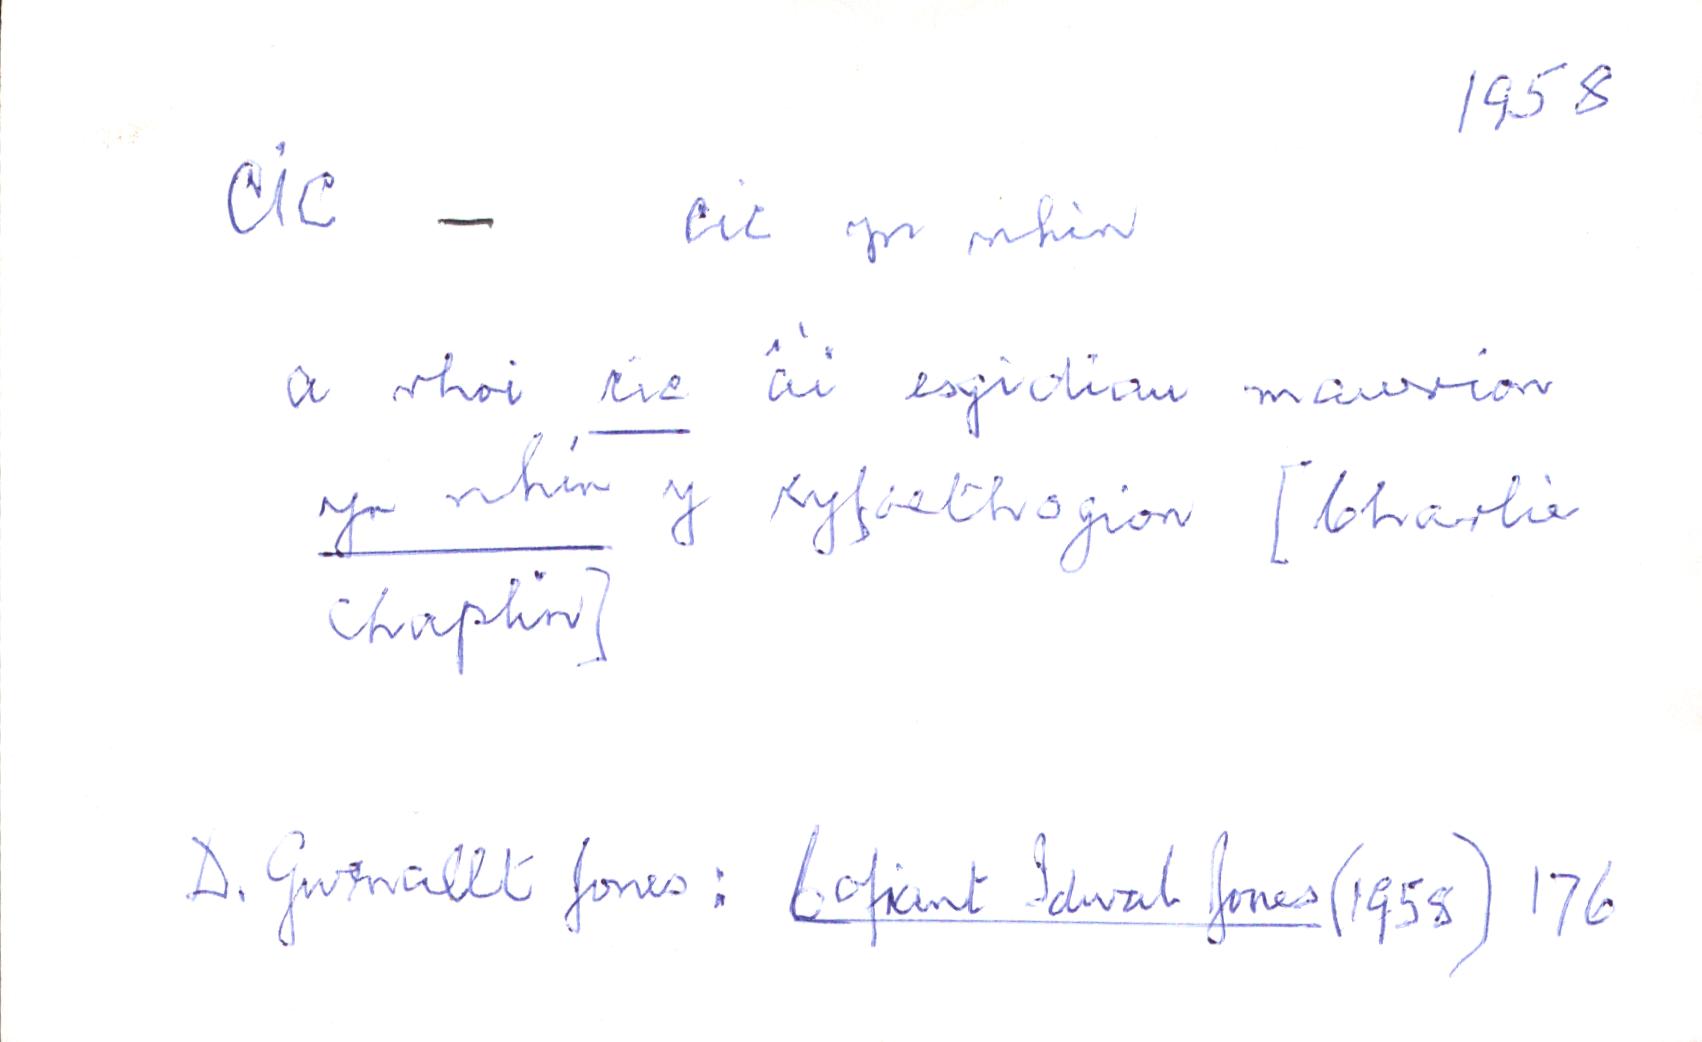 1958
CIC — cic yn nhin
a rhoi cic â'i esgidiau mawrion
yn nhin y cyfoethogion [Charlie
Chaplin]
D. Gwenallt Jones: Cofiant Idwal Jones (1958) 176